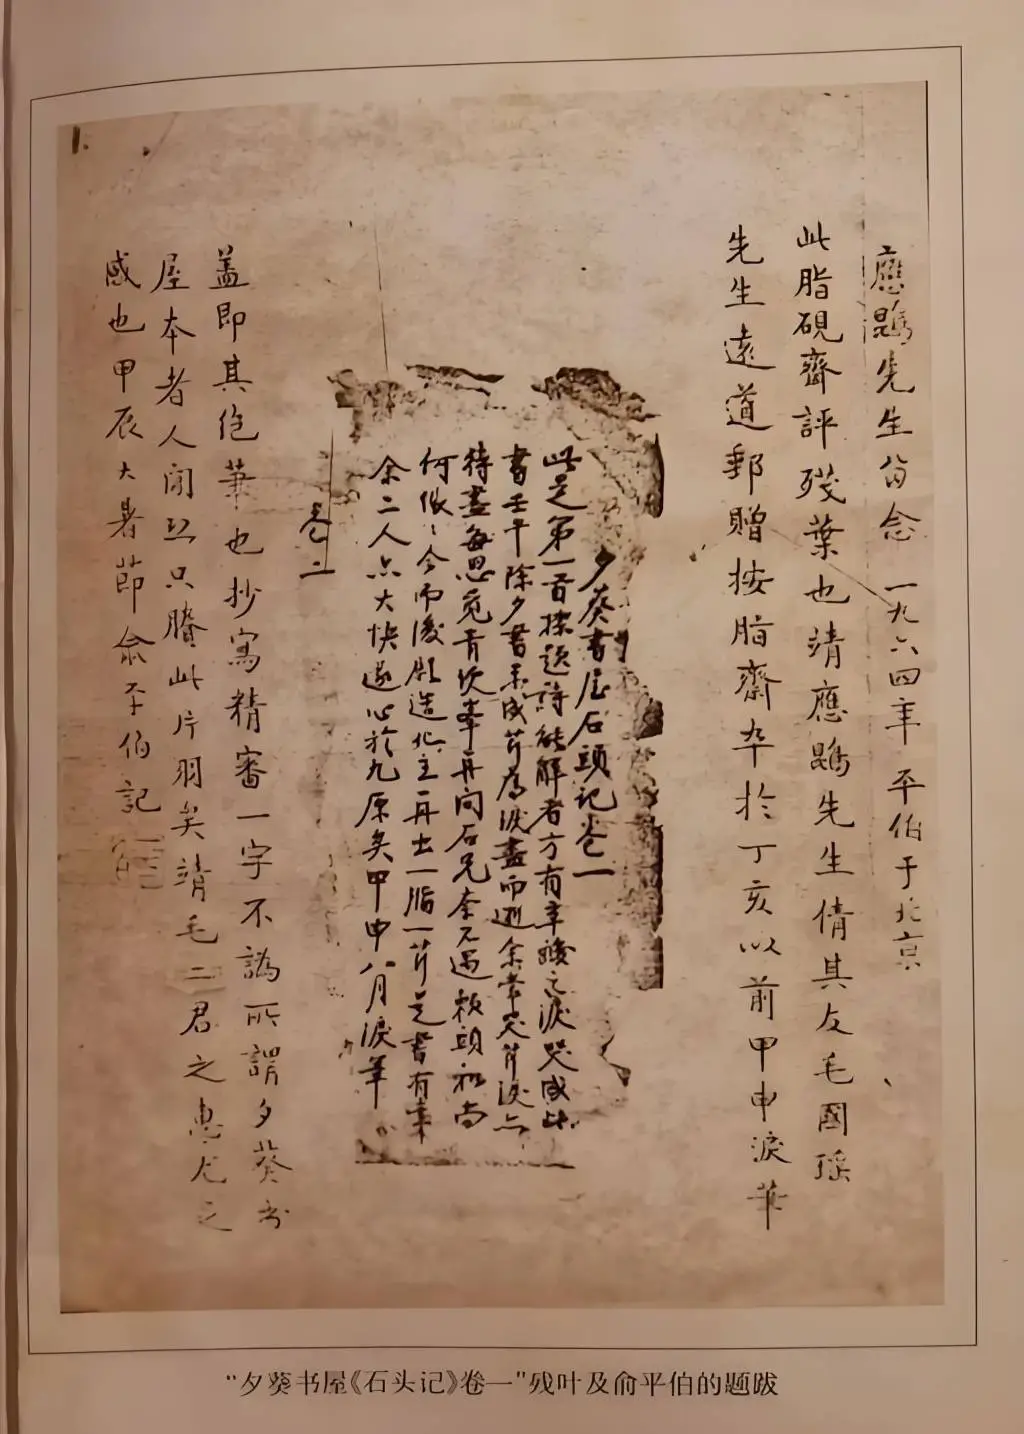 應鵾先生留念 一九六四年 平伯于北京
此脂硯齋評殘葉也靖應鵾先生倩其友毛國瑤
先生遠道郵贈按脂齋卒於丁亥以前甲申淚筆
夕葵書屋石頭記卷一
此是第一首標題詩能解者方有辛酸之淚哭成此
書壬午除夕書未成芹為淚盡而逝余常哭芹淚亦
待盡每思覓青埂峯再問石兄奈不遇癩頭和尚
何悵〻今而後願造化主再出一脂一芹是書有幸
余二人亦大快遂心於九原矣甲申八月淚筆
卷二
蓋即其絕筆也抄寫精審一字不譌所謂夕葵書
屋本者人間恐只賸此片羽矣靖毛二君之惠尤
感也甲辰大暑節俞平伯記
“夕葵书屋《石头记》卷一”残叶及俞平伯的题跋